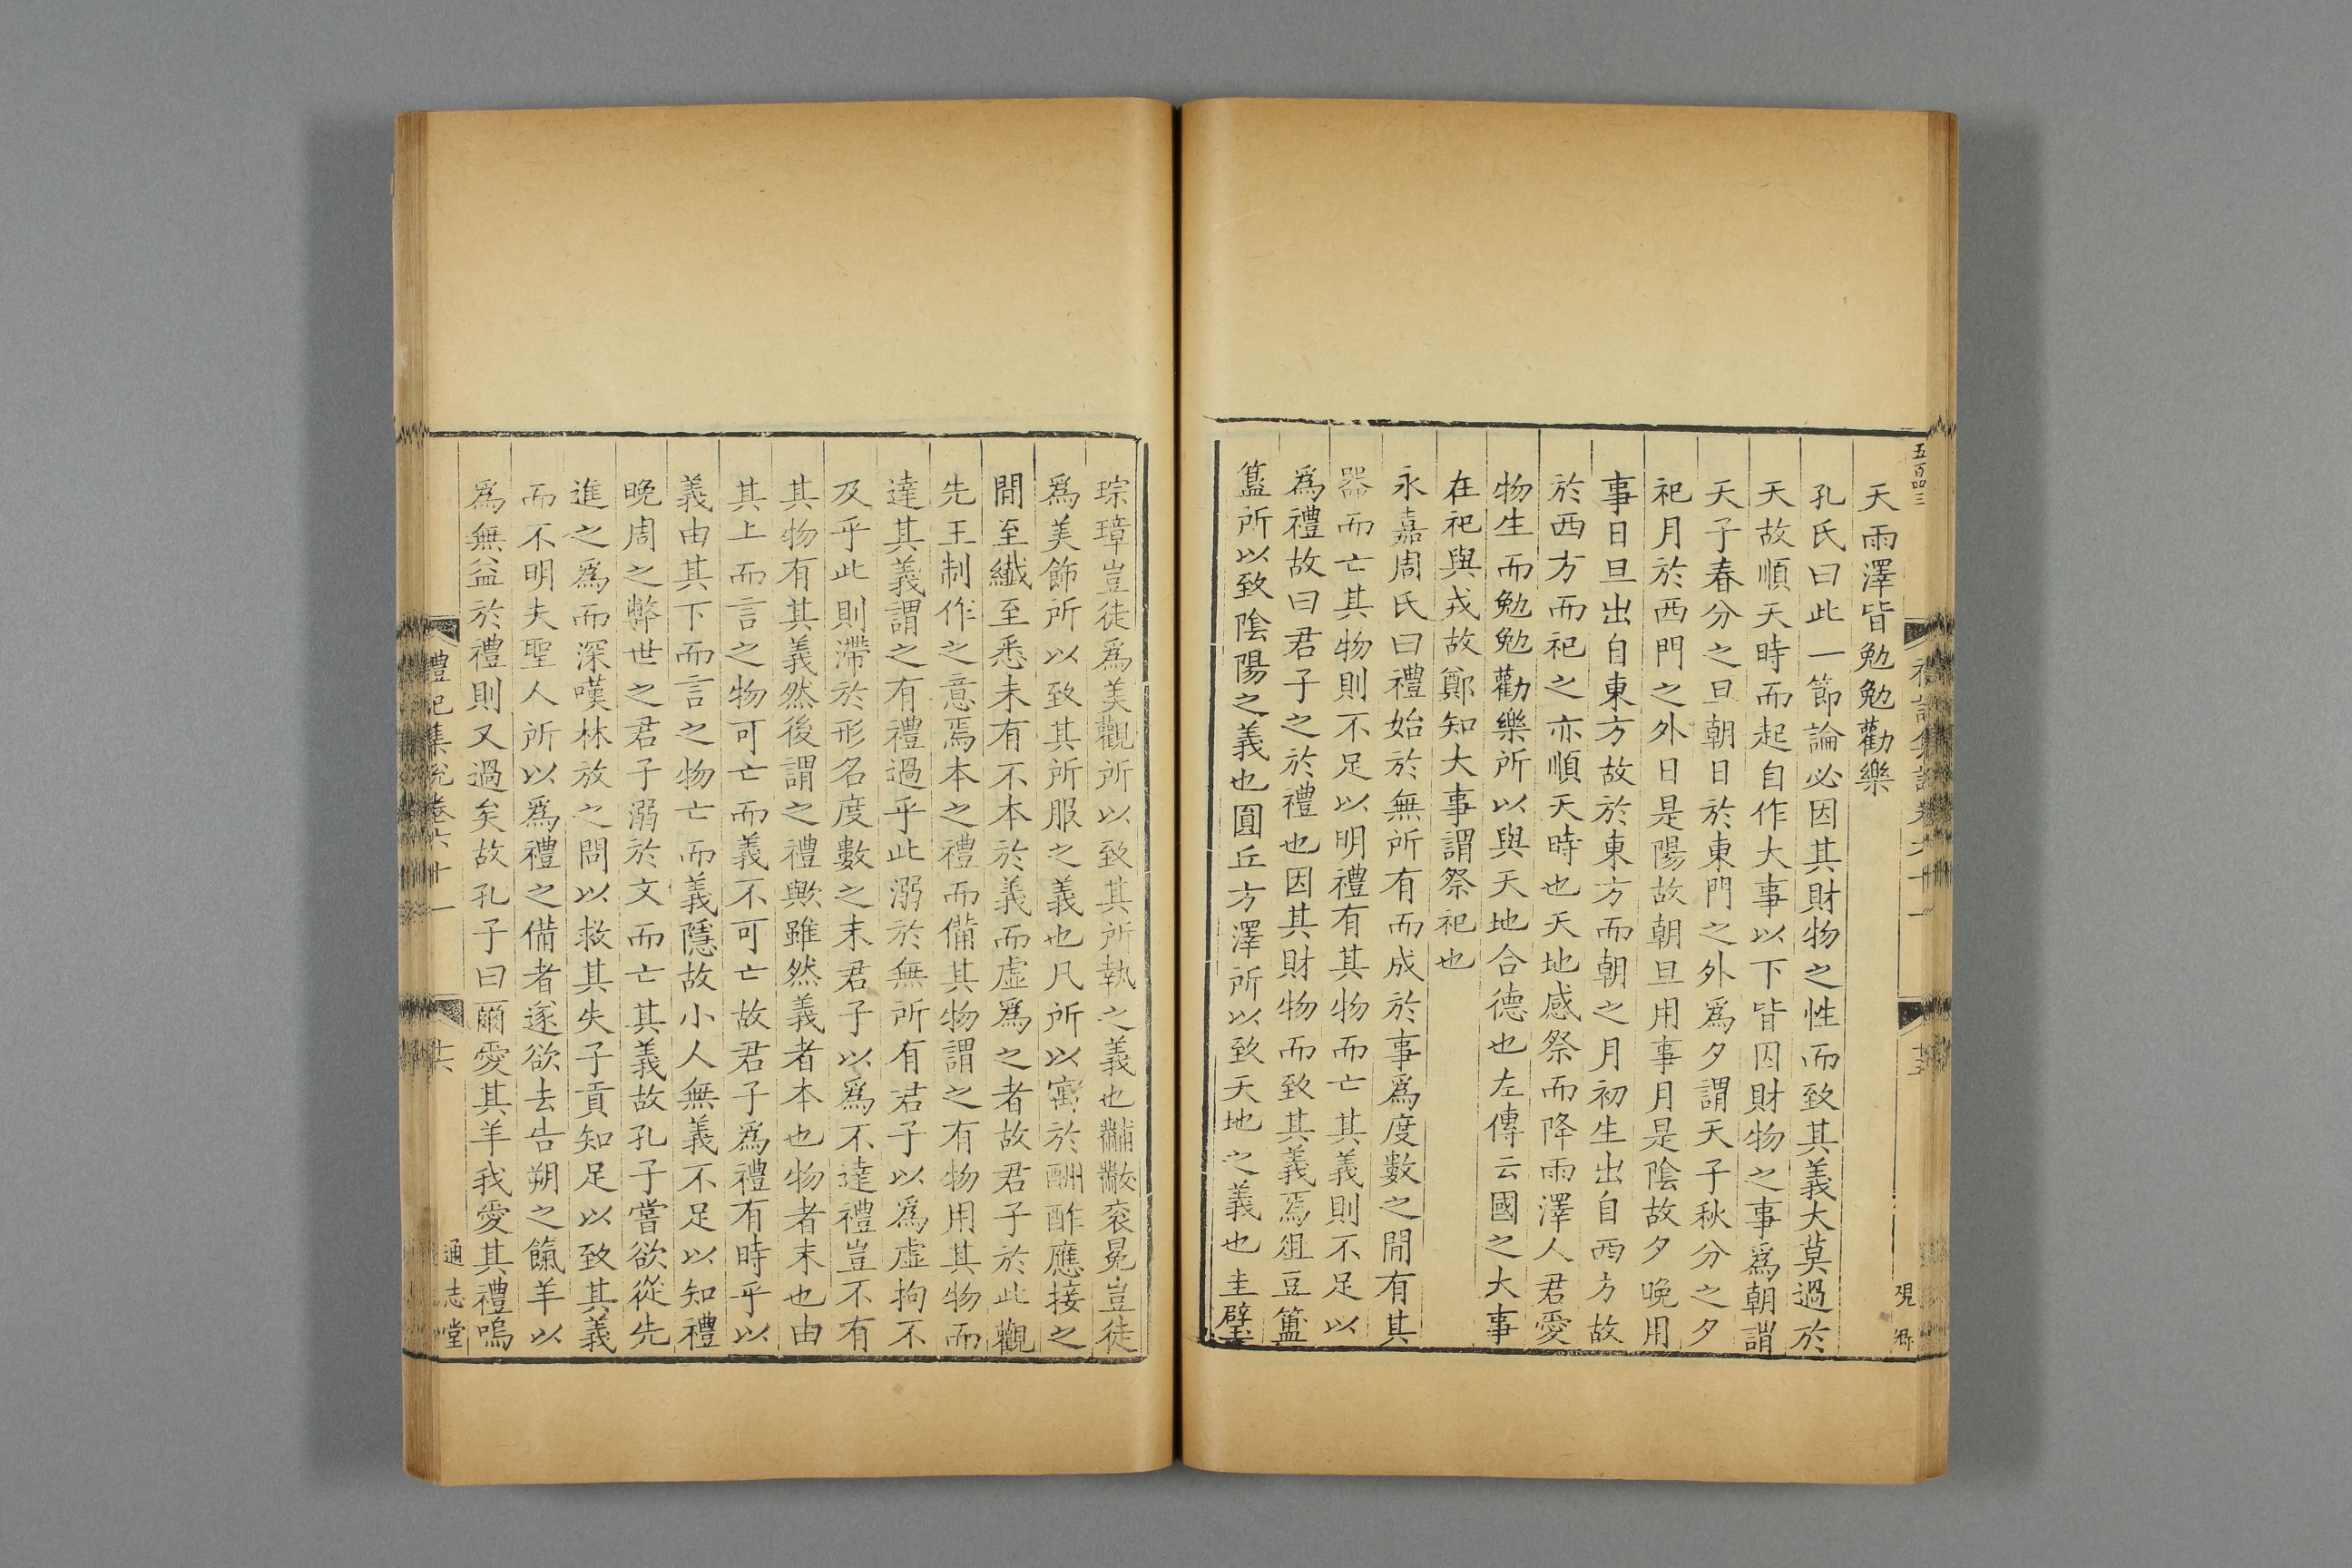 五百四三
天雨澤皆勉勉勸樂
孔氏曰此一節論必因其財物之性而致其義大莫過於
天故順天時而起自作大事以下皆因財物之事爲朝謂
天子春分之旦朝日於東門之外爲夕謂天子秋分之夕
祀月於西門之外日是陽故朝旦用事月是陰故夕晚用
事日旦出自東方故於東方而朝之月初生出自西方故
於西方而祀之亦順天時也天地感祭而降雨澤人君愛
物生而勉勉勸樂所以與天地合德也左傳云國之大事
在祀與戎故鄭知大事謂祭祀也
永嘉周氏曰禮始於無所有而成於事爲度數之閒有其
器而亡其物則不足以明禮有其物而亡其義則不足以
爲禮故曰君子之於禮也因其財物而致其義焉俎豆簠
簋所以致陰陽之義也圓丘方澤所以致天地之義也圭璧
琮璋豈徒爲美觀所以致其所執之義也黼黻衮冕豈徒
爲美飾所以致其所服之義也凡所以寓於酬酢應接之
閒至纖至悉未有不本於義而虛爲之者故君子於此觀
先王制作之意焉本之禮而備其物謂之有物用其物而
達其義謂之有禮過乎此溺於無所有君子以爲虛拘不
及乎此則滯於形名度數之末君子以爲不達禮豈不有
其物有其義然後謂之禮歟雖然義者本也物者末也由
其上而言之物可亡而義不可亡故君子爲禮有時乎以
義由其下而言之物亡而義隱故小人無義不足以知禮
晚周之弊世之君子溺於文而亡其義故孔子嘗欲從先
進之爲而深嘆林放之問以救其失子貢知足以致其義
而不明夫聖人所以爲禮之備者遂欲去告朔之餼羊以
爲無益於禮則又過矣故孔子曰爾愛其羊我愛其禮嗚
禮記集說卷六十一
廿六
通志堂